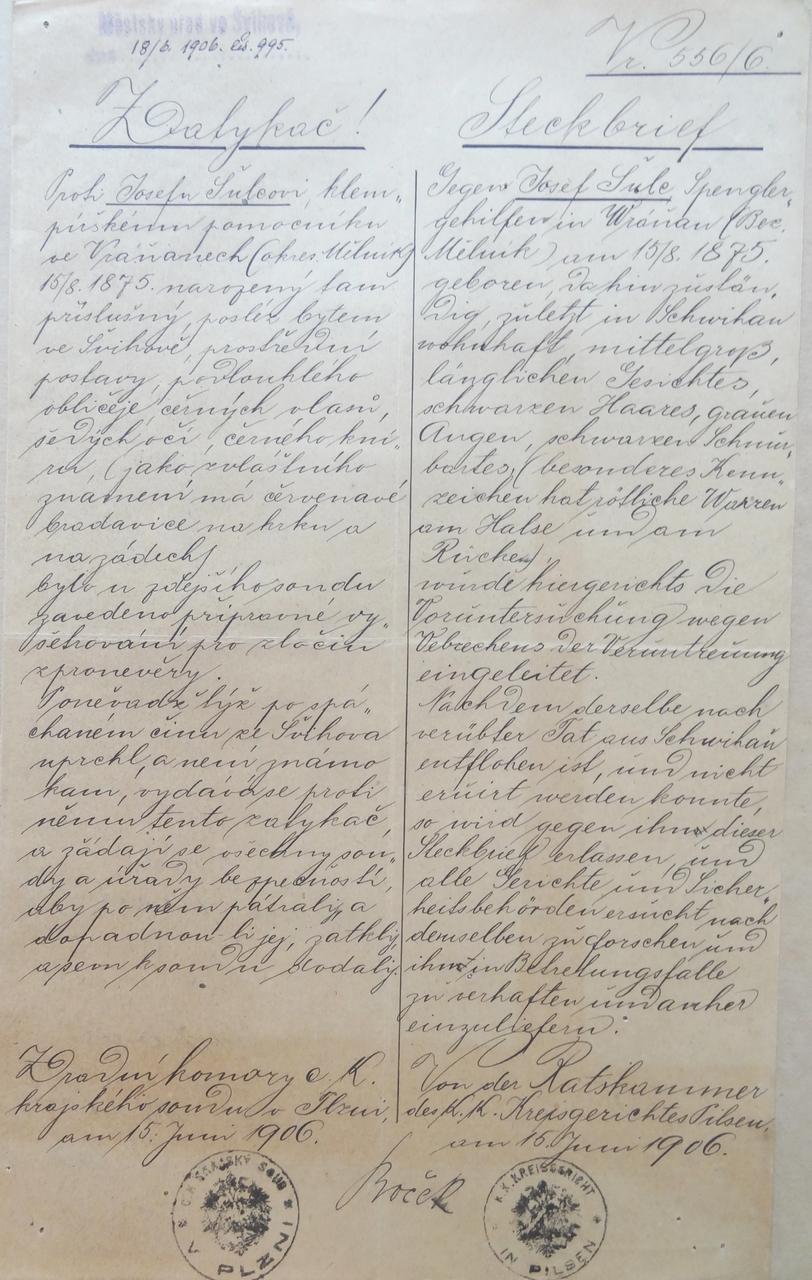 Městský úřad ve Švihově,
18/6. 1906. čís. 995.
Vr. 556/6.
Zatykač!
Proti Josefu Šulcovi, klem„
pířskému pomocníku
ve Vráňanech (okres. Mělník)
15/8. 1875. narozený tam
příslušný, posléz bytem
ve Švihově, prostřední
postavy, podlouhlého
obličeje, černých vlasů,
šedých očí, černého kní„
ru, (jako zvláštního
znamení má červenavé
bradavice na krku a
na zádech)
bylo u zdejšího soudu
zavedeno přípravné vy„
šetřování pro zločin
zpronevěry.
Poněvadž týž po spá„
chaném činu ze Švihova
uprchl, a není známo
kam, vydává se proti
němu tento zatykač,
a žádají se všechny sou„
dy a úřady bezpečností,
aby po něm pátraly, a
dopadnou-li jej, zatkly,
a sem k soudu dodaly.
Z radní komory c. K.
krajského soudu v Plzni,
am 15. Juni 1906.
C.K. KRAJSKÝ SOUD
V PLZNI
Steckbrief
Gegen Josef Šulc, Spengler„
gehilfen in Wráňan (Bez.
Mělnik) am 15/8. 1875.
geboren, dahin zustän„
dig, zuletzt in Schwihau
wohnhaft, mittelgroß,
länglichen Gesichtes,
schwarzen Haares, grauen
Augen, schwarzen Schnur„
bartes, (besonderes Kenn„
zeichen hat rötliche Warzen
am Halse und am
Rücken)
wurde hiergerichts die
Voruntersuchung wegen
Vebrechens der Veruntreuung
eingeleitet.
Nachdem derselbe nach
verübter Tat aus Schwihau
entflohen ist, und nicht
eruirt werden konnte,
so wird gegen ihn dieser
Steckbrief erlassen, und
alle Gerichte und Sicher„
heitsbehörden ersucht nach
demselben zu forschen und
ihn in Betretungsfalle
zu verhaften und anher
einzuliefern.
Von der Ratskammer
des K.K. Kreisgerichtes Pilsen,
am 15. Juni 1906.
Boček
K.K. KREISGERICHT
IN PILSEN